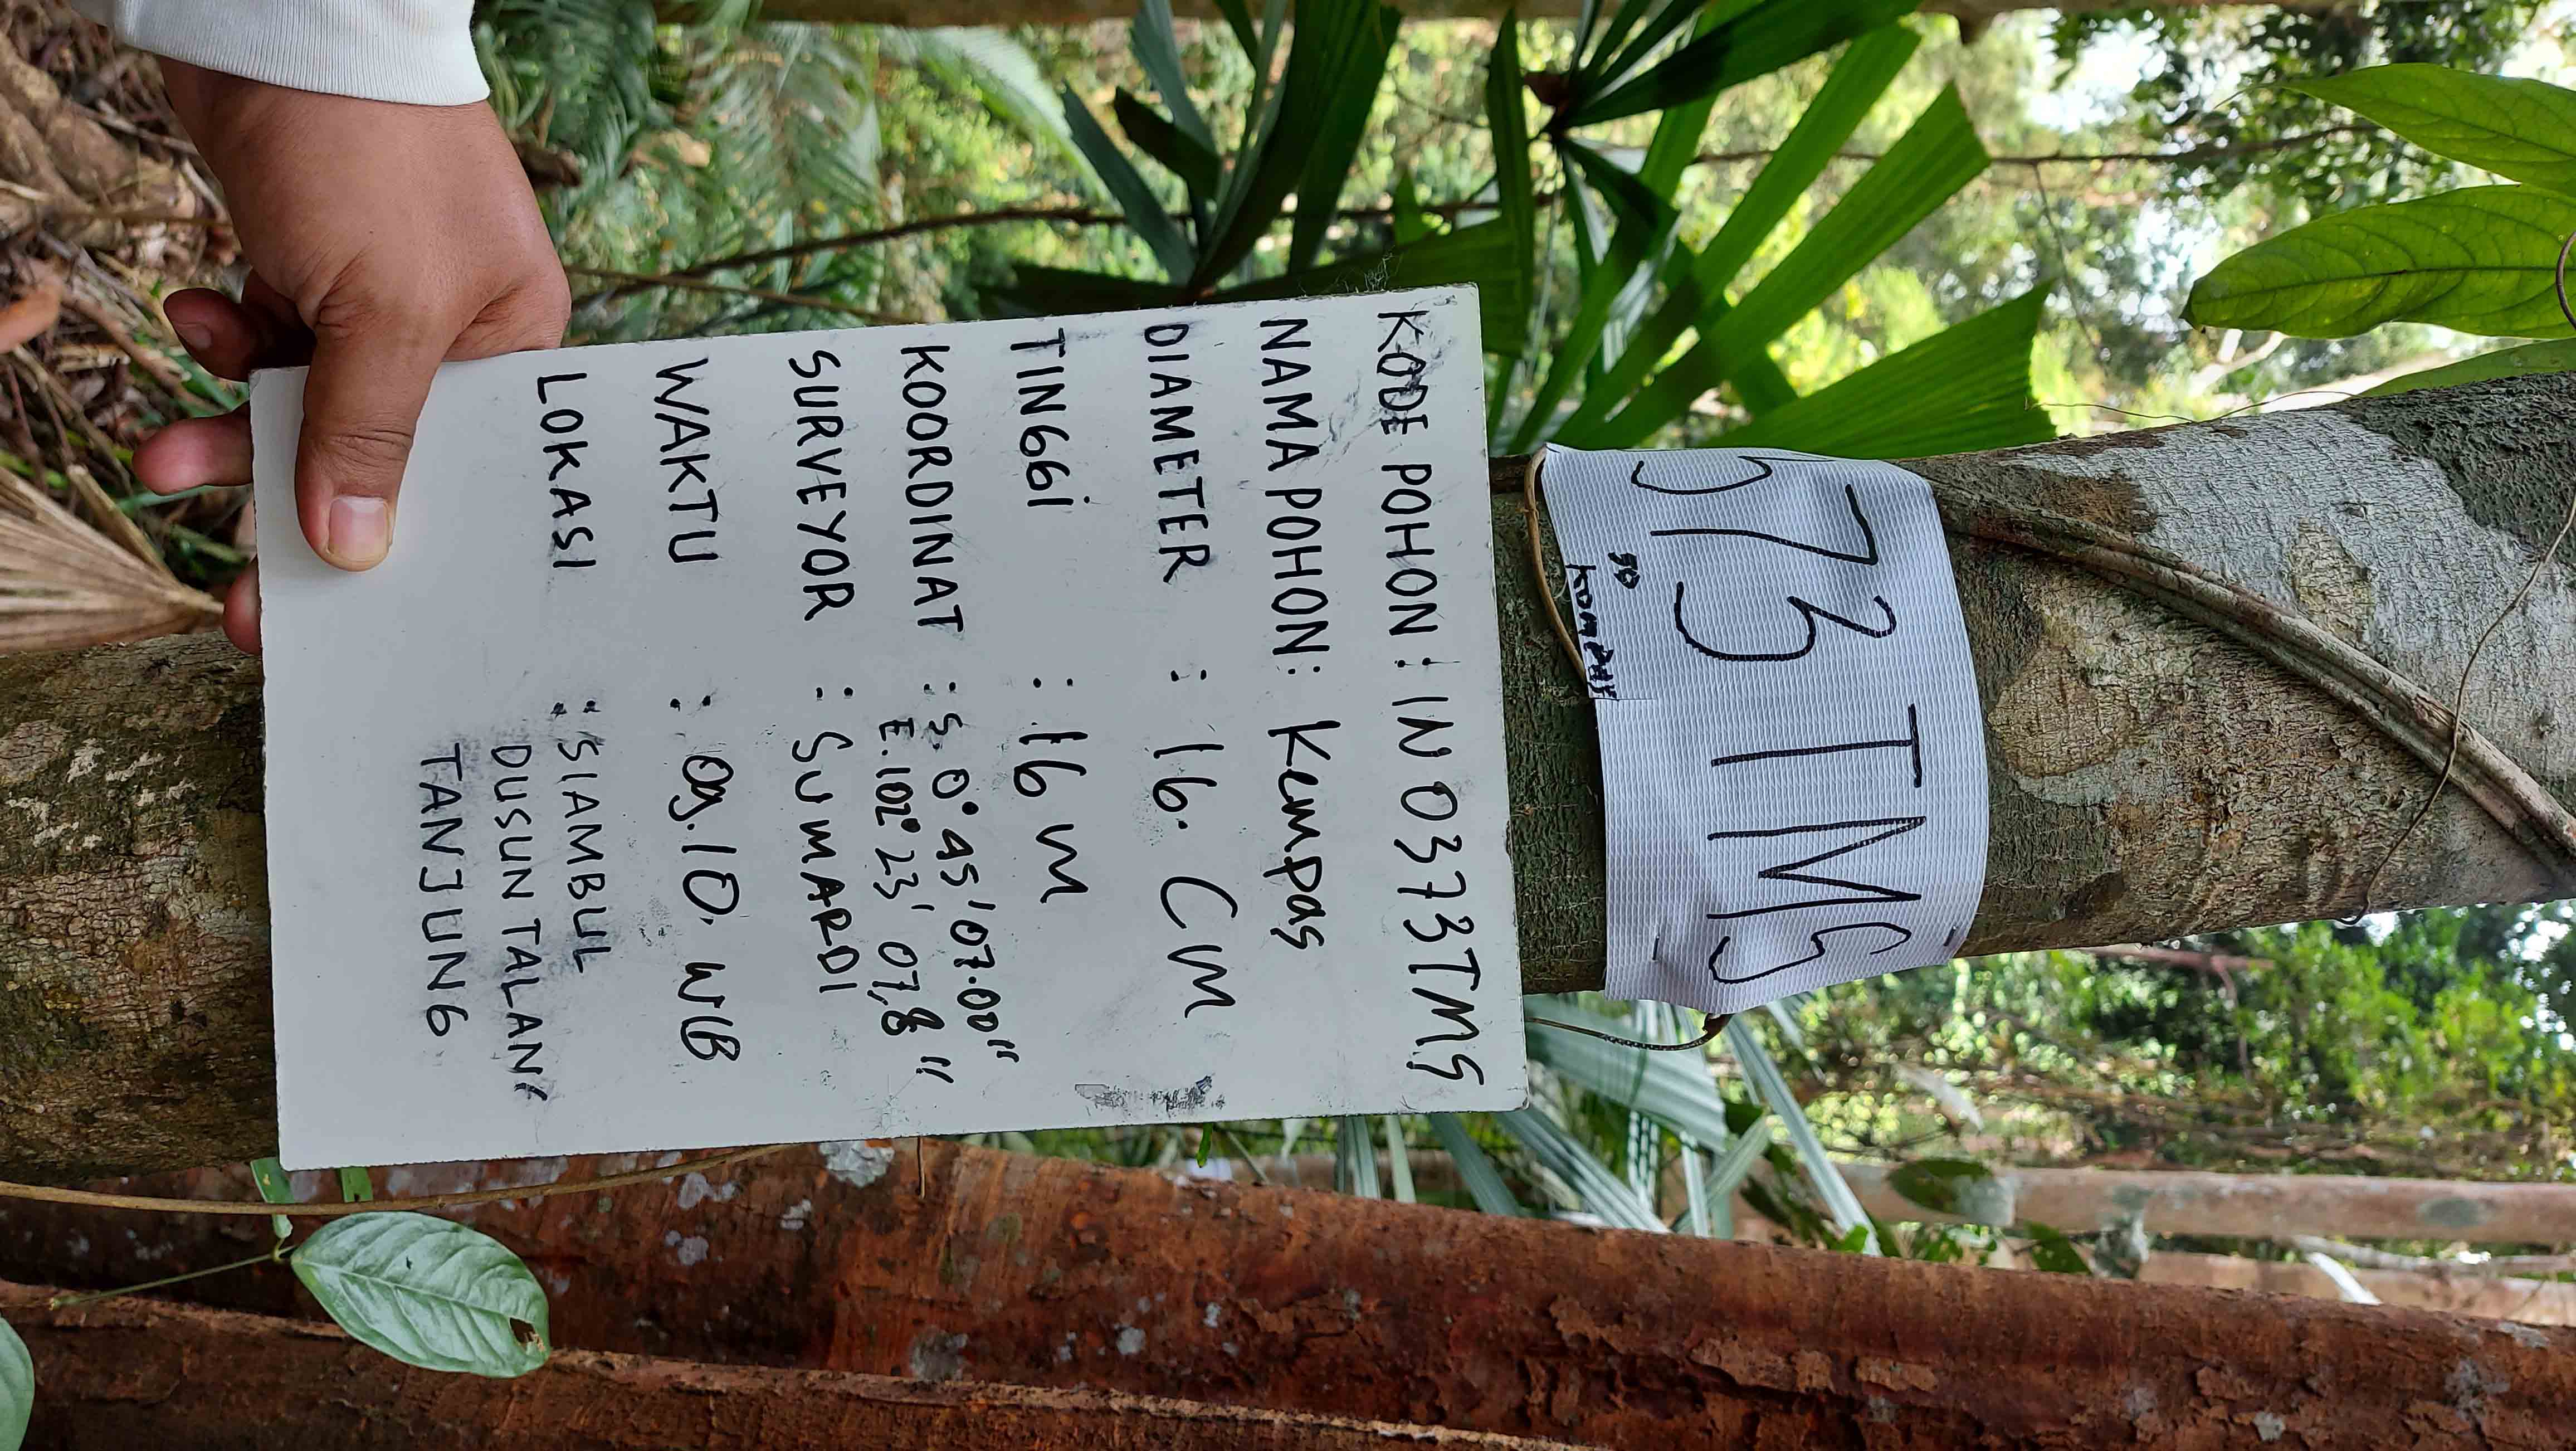 373 TMS
50
KOMPAS
KODE POHON : IN 0373TMS
NAMA POHON : Kempas
DIAMETER : 16. CM
TINGGI : 16 m
KOORDINAT : S. 0° 45' 07.00"
E. 102° 23' 07,8"
SURVEYOR : SUMARDI
WAKTU : 09.10. WIB
LOKASI : SIAMBUL
DUSUN TALAN
TANJUNG